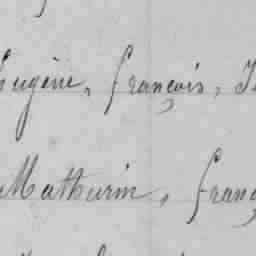 Eugène, François, J
Mathurin, Franç